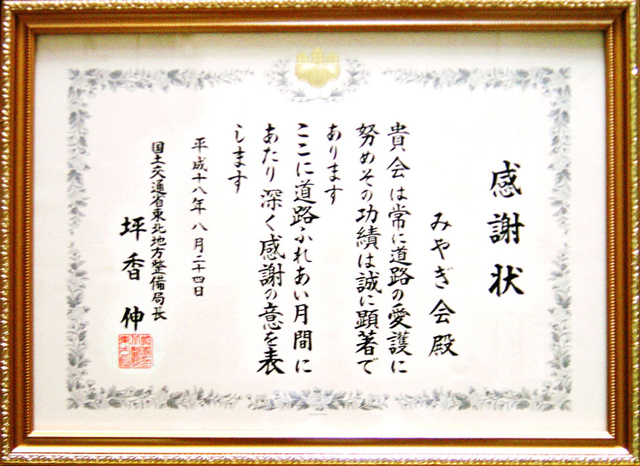 感謝状
みやぎ会殿
貴会は常に道路の愛護に
努めその功績は誠に顕著で
あります
ここに道路ふれあい月間に
あたり深く感謝の意を表
します
平成十八年八月二十四日
国土交通省東北地方整備局長
坪香伸